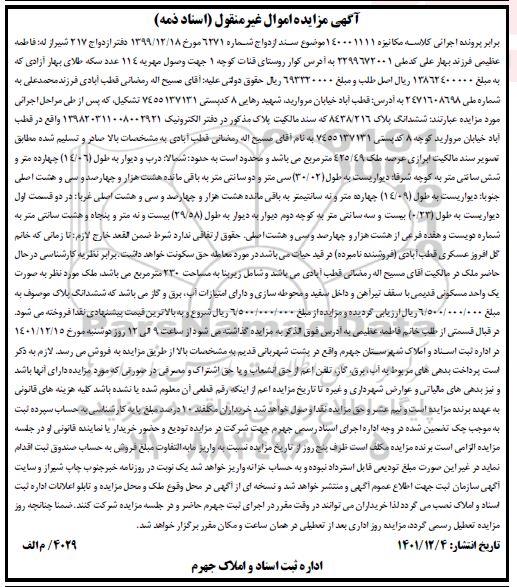 آگهی مزایده اموال غیرمنقول (اسناد ذمه)
برابر پرونده اجرائی کلاسه مکانیزه ۱۴۰۰۰۱۱۱۱موضوع سند ازدواج شماره ۶۲۷۱ مورخ ۱۳۹۹/۱۲/۱۸ دفتر ازدواج ۲۱۷ شیراز له: فاطمه
عظیمی فرزند بهار علی کدملی ۲۲۹۹۶۷۲۰۰۱ به آدرس کوار روستای قنات کوچه ۱ جهت وصول مهریه ۱۱۴ عدد سکه طلای بهار آزادی که
به مبلغ ۱۳۸۶۲۴۰۰۰۰۰ ریال اصل طلب و مبلغ ۶۹۳۳۲۰۰۰۰ ریال حقوق دولتی علیه: آقای مسیح اله رمضانی قطب آبادی فرزندمحمدعلی به
شماره ملی ۲۴۷۱۶۰۸۶۹۸ به آدرس: قطب آباد خیابان مروارید، شهید رهایی ۸ کدپستی ۷۴۵۵۱۳۷۱۳۱ تشکیل، که پس از طی مراحل اجرائی
مورد مزایده عبارتند: ششدانگ پلاک ۸۴۳۸/۲۱۶ که سند مالکیت پلاک مذکور در دفتر الکترونیک ۱۳۹۸۲۰۳۱۱۰۰۸۰۰۲۹۲۱ واقع در قطب
آباد خیابان مروارید کوچه ۸ کدپستی ۷۴۵۵۱۳۷۱۳۱ به نام آقای مسیح اله رمضانی قطب آبادی به مشخصات بالا صادر و تسلیم شده مطابق
تصویر سند مالکیت ابرازی عرصه ملک ۴۲۵/۴۹ مترمربع می باشد و محدود است به حدود: شمالا: درب و دیوار به طول (۱۴/۰۶) چهارده متر و
شش سانتی متر به کوچه شرقا: دیواریست به طول (۳۰/۰۲) سی متر و دو سانتی متر به باقی مانده هشت هزار و چهارصد و سی و هشت اصلی
جنوبا: دیواریست به طول (۱۴/۰۹) چهارده متر و نه سانتیمتر به باقی مانده هشت هزار و چهارصد و سی و هشت اصلی غربا: در دو قسمت اول
دیواریست به طول (۰/۲۳) بیست و سه سانتی متر به کوچه دوم دیوار به دیوار به طول (۲۹/۵۸) بیست و نه متر و پنجاه و هشت سانتی متر به
شماره دویست و هفده فرعی از هشت هزار و چهارصد و سی و هشت اصلی. حقوق ارتفاقی ندارد شرط ضمن العقد خارج لازم: تا زمانی که خانم
گل افروز عسکری قطب آبادی (فروشنده نامبرده) در قید حیات می باشد در مورد معامله حق سکونت خواهد داشت. برابر نظریه کارشناسی در حال
حاضر ملک در مالکیت آقای مسیح اله رمضانی قطب آبادی می باشد و شامل زیربنا به مساحت ۲۳۰ مترمربع می باشد، ملک مورد نظر به صورت
یک واحد مسکونی قدیمی با سقف تیرآهن و داخل سفید و محوطه سازی و دارای امتیازات آب، برق و گاز می باشد که ششدانگ پلاک موصوف به
مبلغ ۶/۵۰۰/۰۰۰/۰۰۰ ریال ارزیابی گردیده و مزایده از مبلغ ۶/۵۰۰/۰۰۰/۰۰۰ ریال شروع و به بالاترین قیمت پیشنهادی نقدا فروخته می شود.
در قبال قسمتی از طلب خانم فاطمه عظیمی به آدرس فوق الذکر به مزایده گذاشته می شود از ساعت ۹ الی ۱۲ روز دوشنبه مورخ ۱۴۰۱/۱۲/۱۵
در اداره ثبت اسناد و املاک شهرستان جهرم واقع در پشت شهربانی قدیم به مشخصات بالا از طریق مزایده به فروش می رسد. لازم به ذکر
است پرداخت بدهی های مربوط به آب، برق، گاز، تلفن اعم از حق انشعاب و یا حق اشتراک و مصرفی در صورتی که مورد مزایده دارای آنها باشد
و نیز بدهی های مالیاتی و عوارض شهرداری و غیره تا تاریخ مزایده اعم از اینکه رقم قطعی آن معلوم شده یا نشده باشد کلیه هزینه های قانونی
به عهده برنده مزایده است و نیم عشر و حق مزایده نقدا وصول خواهد شد خریداران مکلفند ۱۰ درصد مبلغ پایه کارشناسی به حساب سپرده ثبت
به موجب چک تضمین شده در وجه اداره اجرای اسناد رسمی جهرم جهت شرکت در مزایده تودیع و حضور خریدار یا نماینده قانونی او در جلسه
مزایده الزامی است برنده مزایده مکلف است ظرف پنج روز از تاریخ مزایده نسبت به واریز مابه التفاوت مبلغ فروش به حساب صندوق ثبت اقدام
نماید در غیر این صورت مبلغ تودیعی قابل استرداد نبوده و به حساب خزانه واریز خواهد شد یک نوبت در روزنامه خبرجنوب چاپ شیراز و سایت
آگهی سازمان ثبت جهت اطلاع عموم آگهی و منتشر خواهد شد و نسخه ای از آگهی در محل وقوع ملک و محل مزایده و تابلو اعلانات اداره ثبت
اسناد و املاک نصب می گردد لذا خریداران می توانند در وقت مقرر در اجرای ثبت جهرم حاضر و در جلسه مزایده شرکت کنند. ضمنا چنانچه روز
مزایده تعطیل رسمی گردد، مزایده روز اداری بعد از تعطیلی در همان ساعت و مکان مقرر برگزار خواهد شد.
تاریخ انتشار: ۱۴۰۱/۱۲/۴
۴۰۲۹/م الف
اداره ثبت اسناد و املاک جهرم